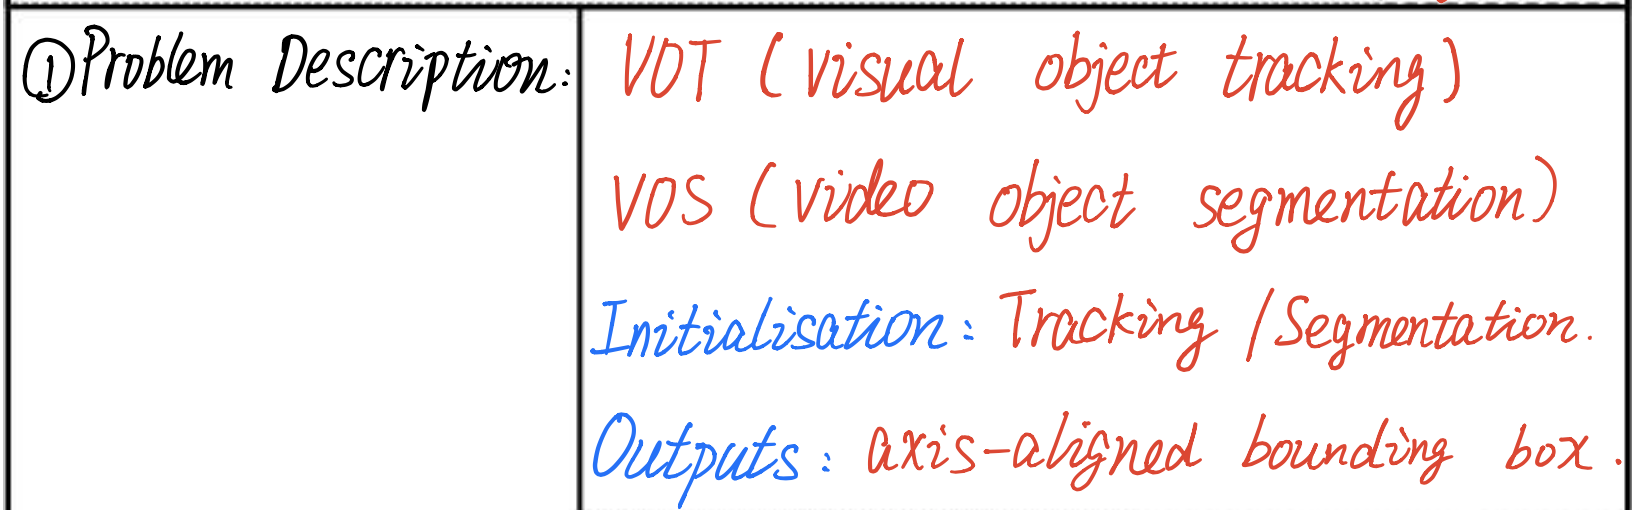 ①Problem Description:
VOT (visual object tracking)
VOS (video object segmentation)
Initialisation: Tracking / Segmentation.
Outputs: axis-aligned bounding box.